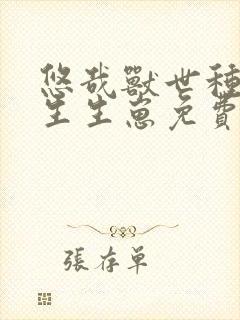 悠哉獸世種
生生崽免費
張存單